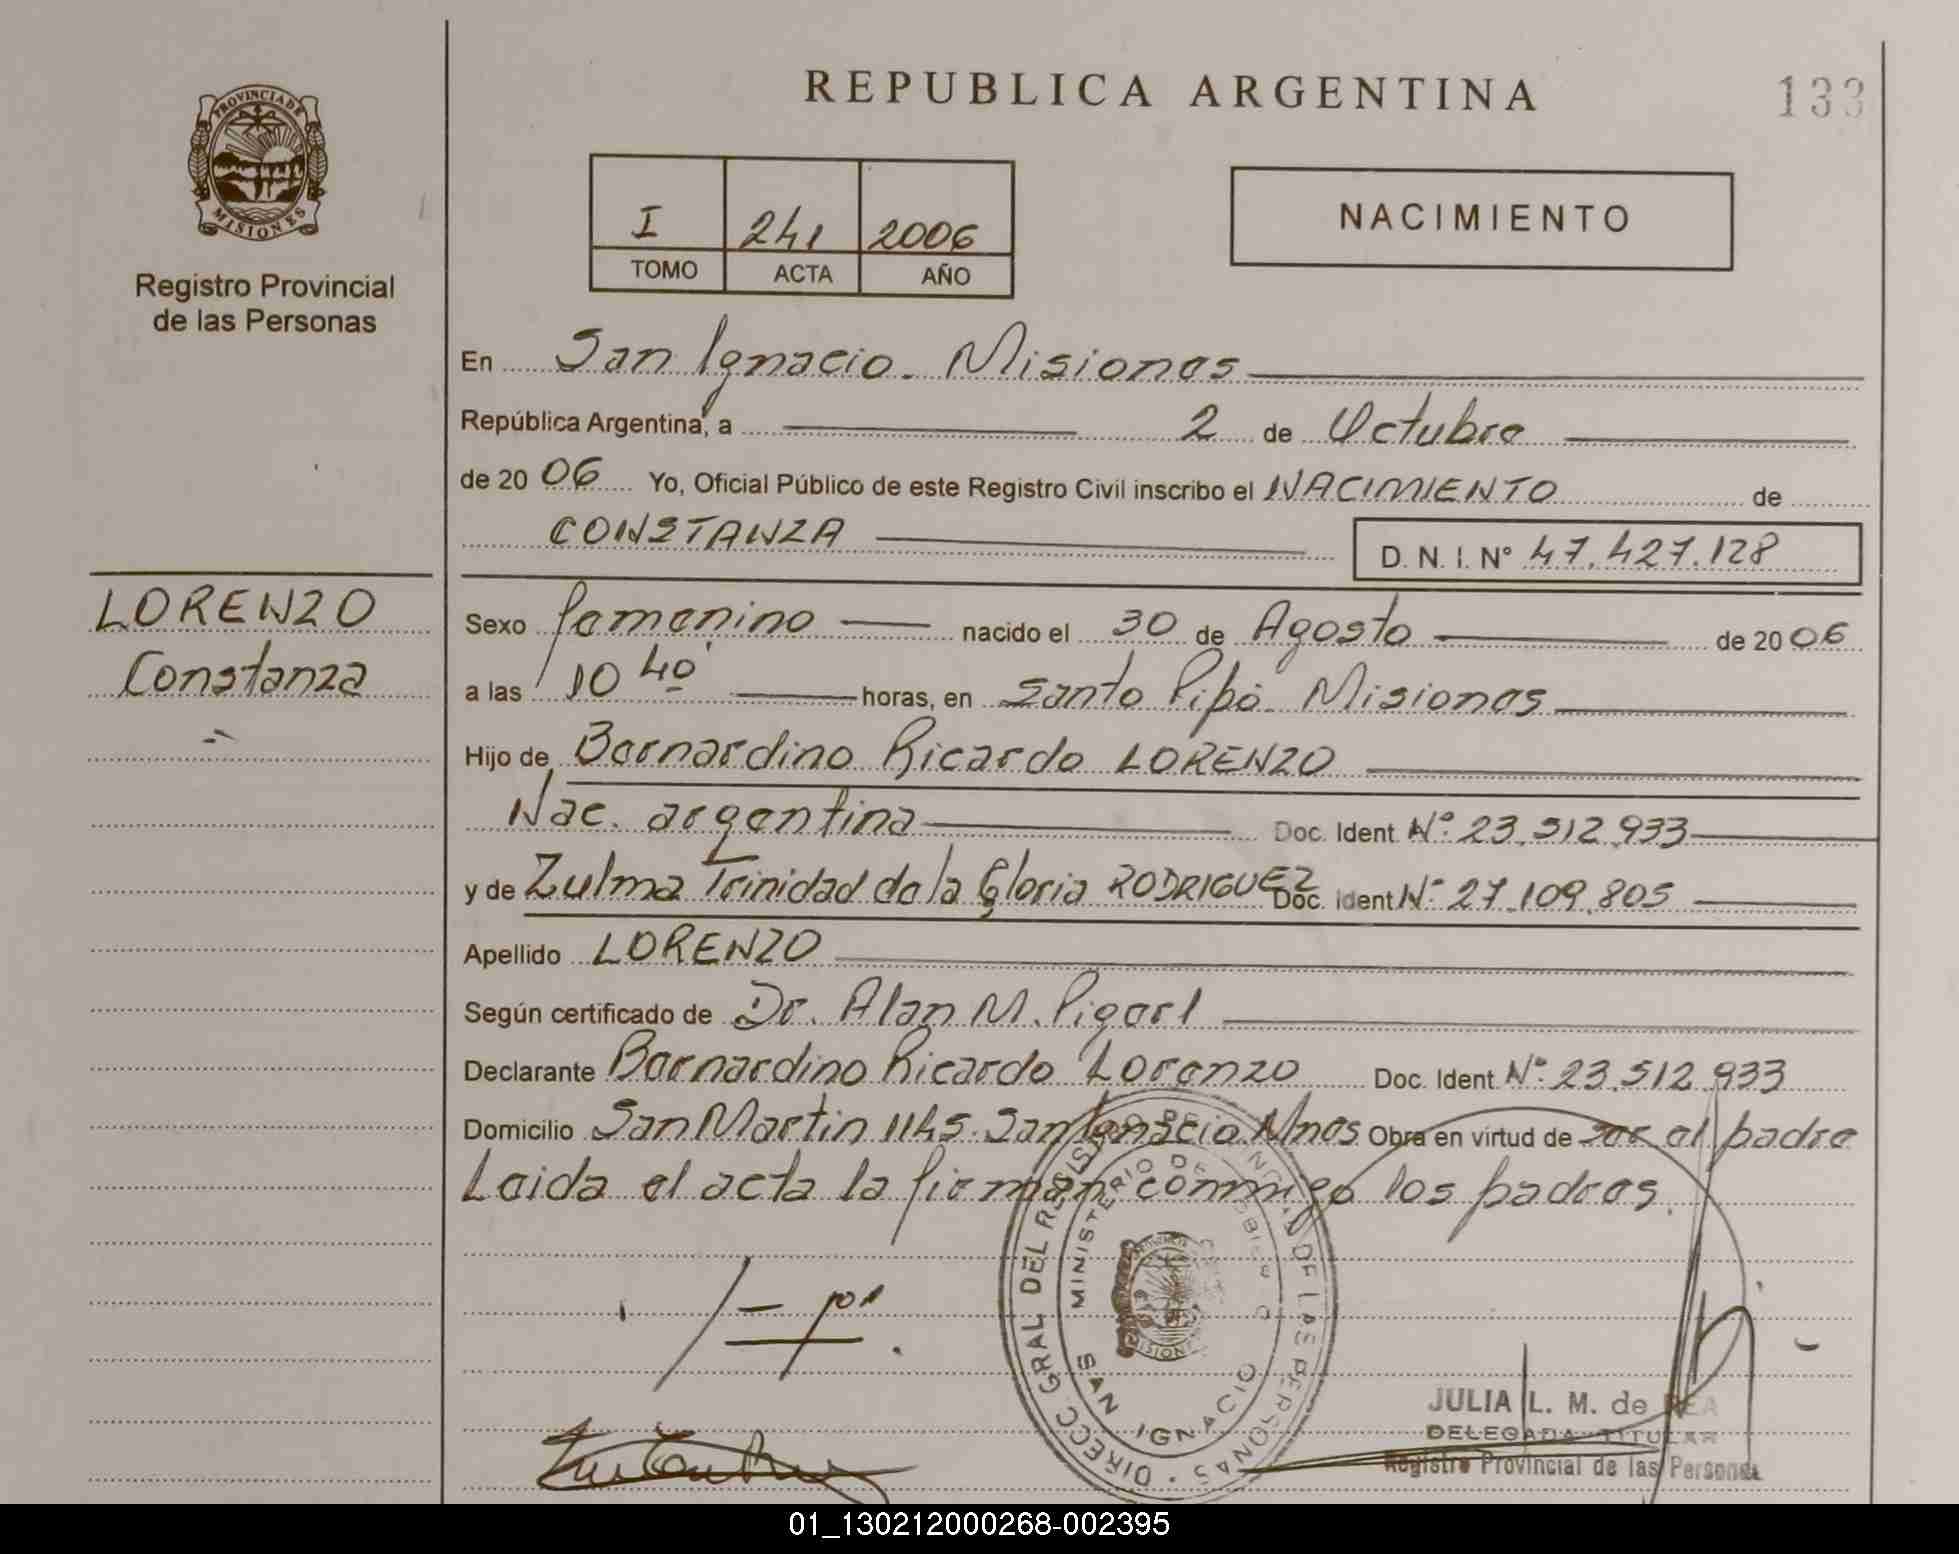 REPUBLICA ARGENTINA
133
PROVINCIA DE
MISIONES
Registro Provincial
de las Personas
I 241 2006
TOMO ACTA AÑO
NACIMIENTO
En San Ignacio. Misiones
República Argentina, a 2 de Octubre
de 20 06 Yo, Oficial Público de este Registro Civil inscribo el NACIMIENTO de
CONSTANZA D. N. I. N° 47.427.128
LORENZO
Constanza
Sexo femenino nacido el 30 de Agosto de 20 06
a las 10 40 horas, en Santo Pipó Misiones
Hijo de Bernardino Ricardo LORENZO
Nac. argentina Doc. Ident N° 23.512.933
y de Zulma Trinidad de la Gloria RODRIGUEZ Doc. Ident N° 27.109.805
Apellido LORENZO
Según certificado de Dr. Alan M.
Declarante Bernardino Ricardo Lorenzo Doc. Ident N° 23.512.933
Domicilio San Martin 1145. San Ignacio Mnes Obra en virtud de ser el padre
Leida el acta la firman conmigo los padres.
DIRECC GRAL DEL REGISTRO PROVINCIAL DE LAS PERSONAS
MINISTERIO DE GOBIERNO
SAN IGNACIO
JULIA L. M. de REA
DELEGADA TITULAR
Registro Provincial de las Personas
01_130212000268-002395